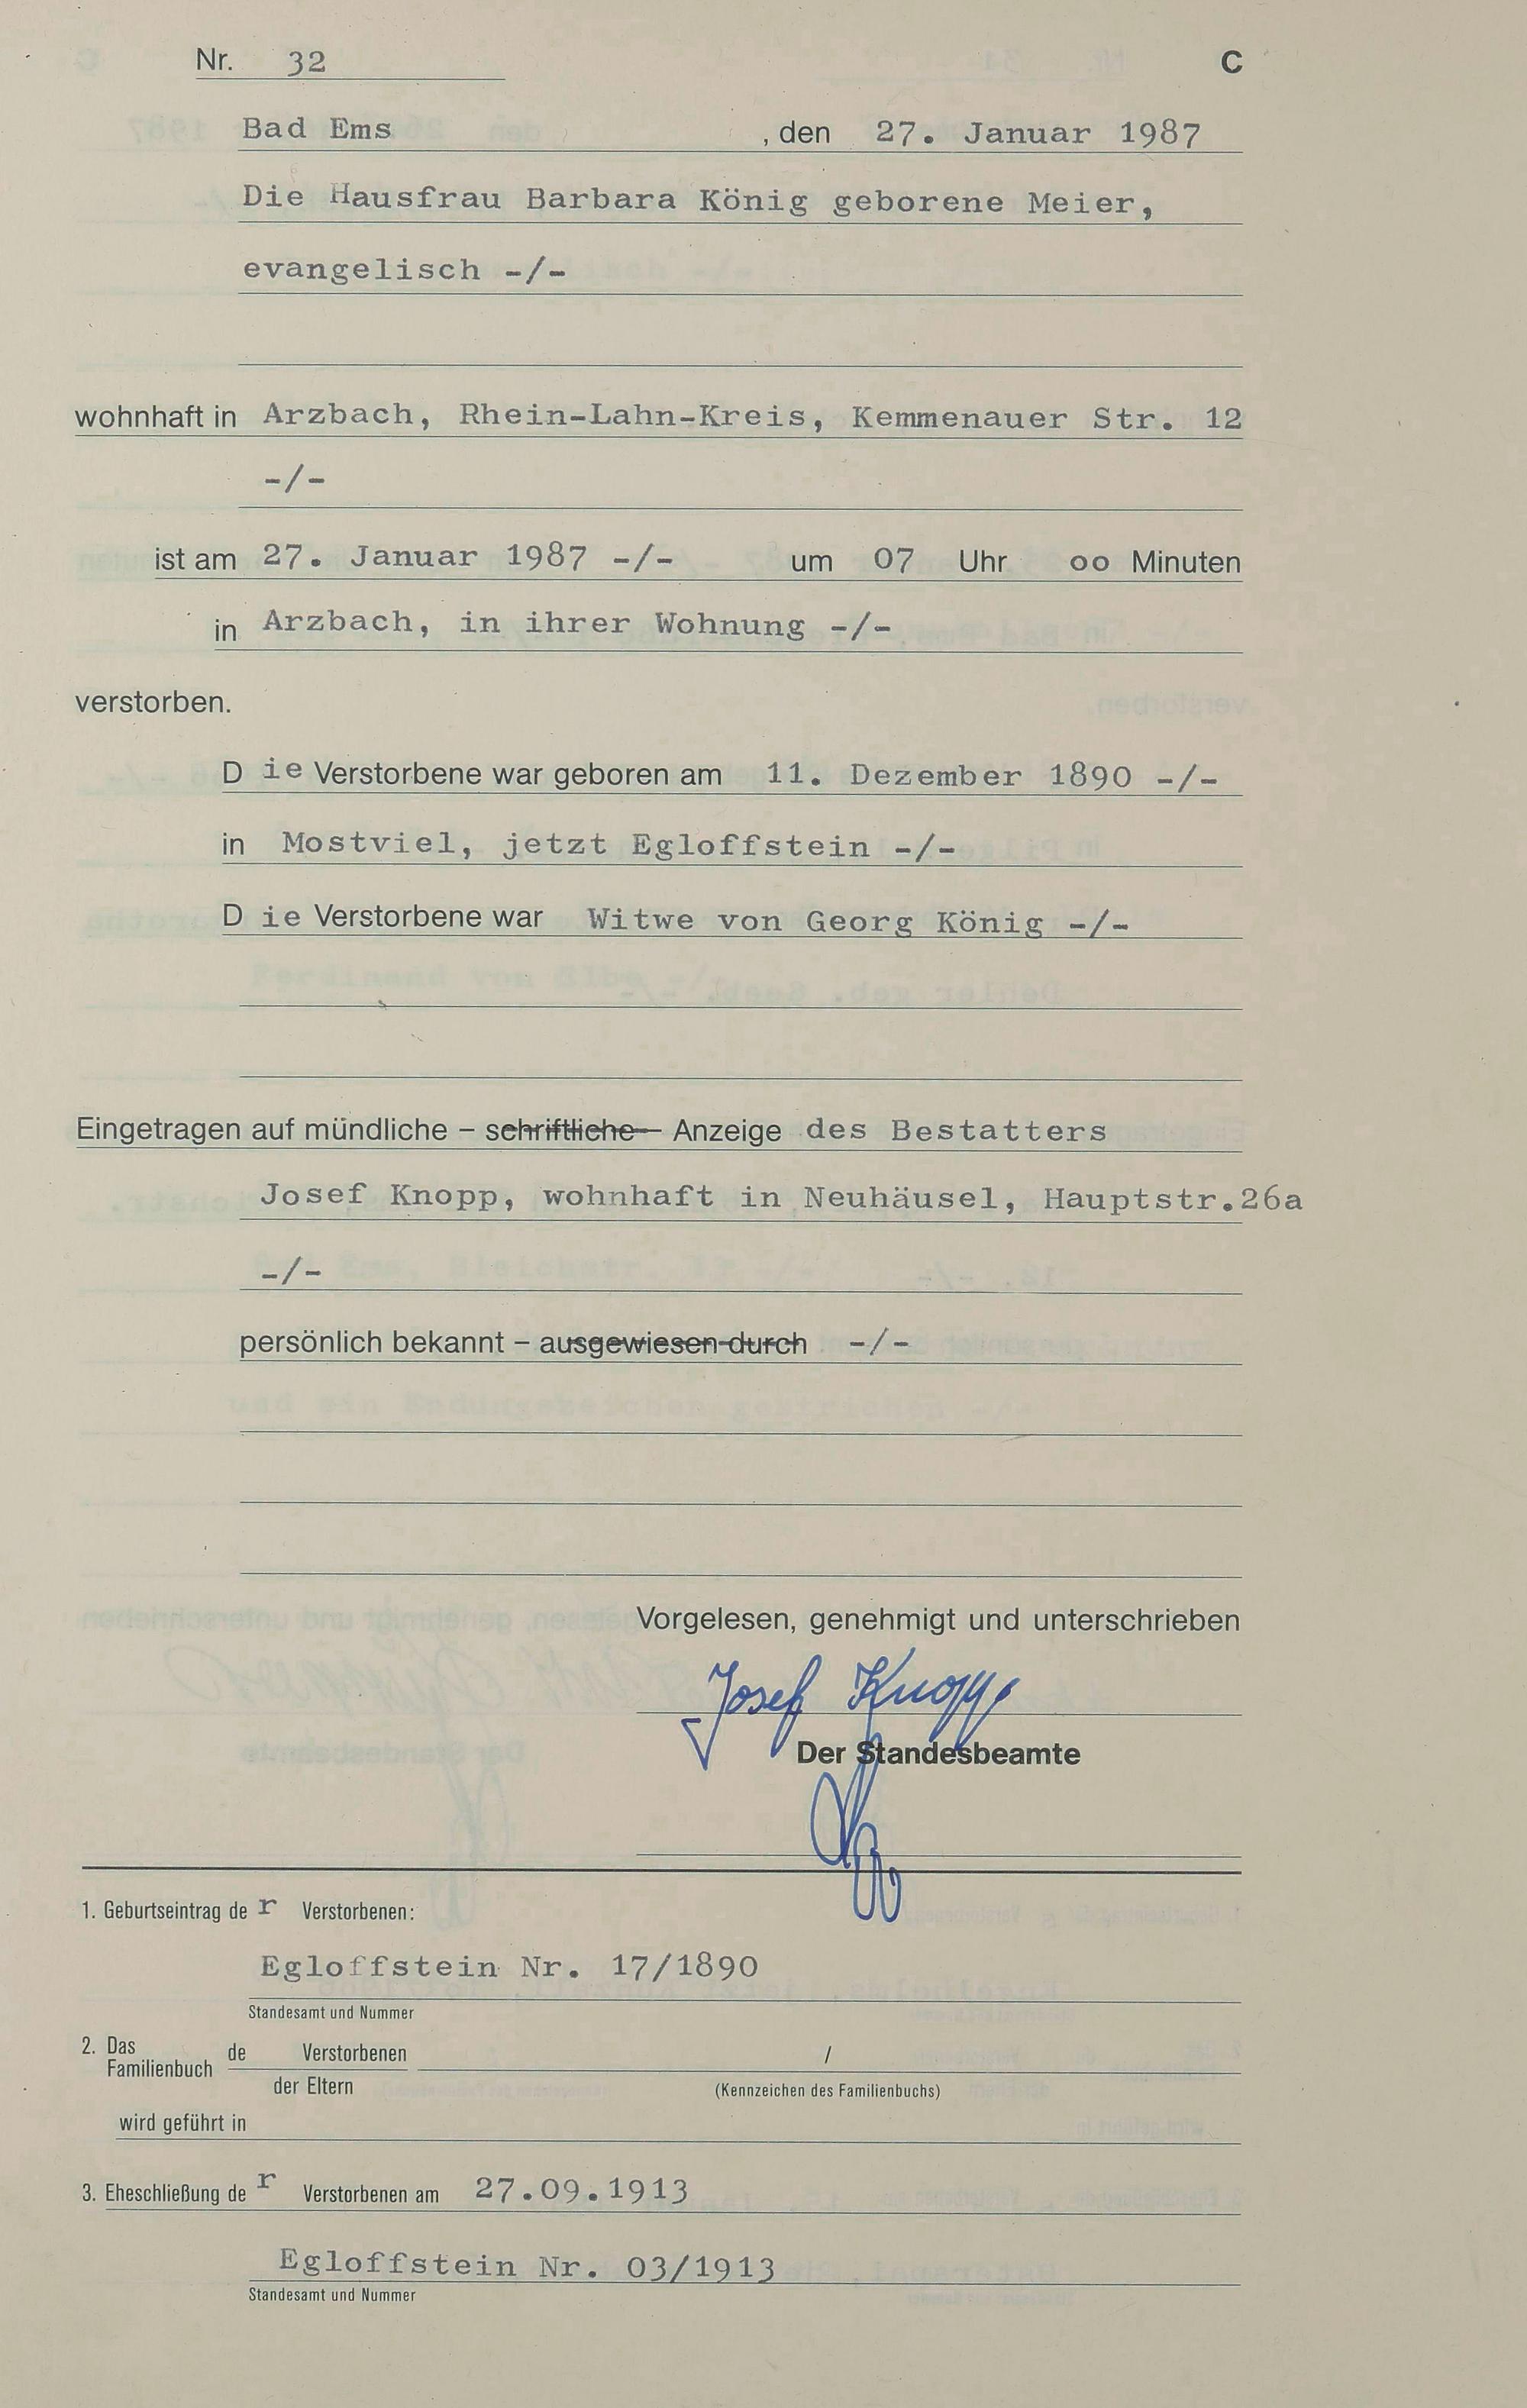 Nr. 32 C
Bad Ems , den 27. Januar 1987
Die Hausfrau Barbara König geborene Meier,
evangelisch -/-
wohnhaft in Arzbach, Rhein-Lahn-Kreis, Kemmenauer Str. 12
-/-
ist am 27. Januar 1987 -/- um 07 Uhr oo Minuten
in Arzbach, in ihrer Wohnung -/-
verstorben.
D ie Verstorbene war geboren am 11. Dezember 1890 -/-
in Mostviel, jetzt Egloffstein -/-
D ie Verstorbene war Witwe von Georg König -/-
Eingetragen auf mündliche – schriftliche – Anzeige des Bestatters
Josef Knopp, wohnhaft in Neuhäusel, Hauptstr.26a
-/-
persönlich bekannt – ausgewiesen durch -/-
Vorgelesen, genehmigt und unterschrieben
Josef Knopp
Der Standesbeamte
1. Geburtseintrag de r Verstorbenen:
Egloffstein Nr. 17/1890
Standesamt und Nummer
2. Das Familienbuch de Verstorbenen /
der Eltern (Kennzeichen des Familienbuchs)
wird geführt in
3. Eheschließung de r Verstorbenen am 27.09.1913
Egloffstein Nr. 03/1913
Standesamt und Nummer